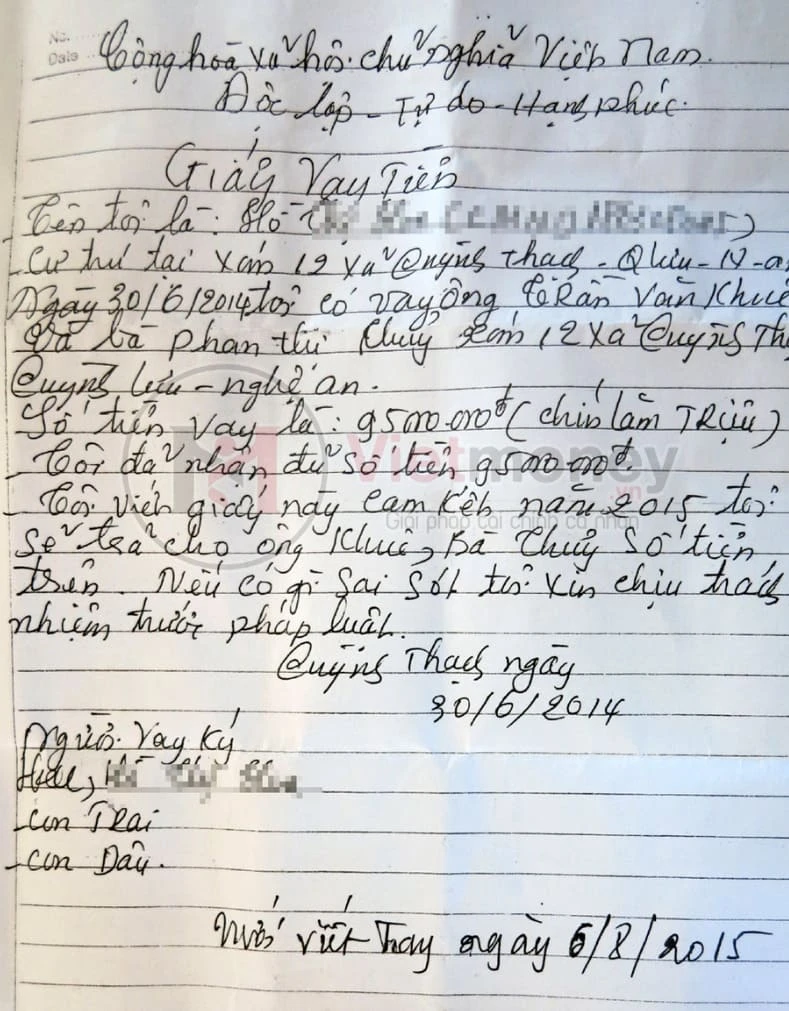 No.
Date
Cộng hoà xã hôi chủ nghĩa Việt Nam.
Độc lập - Tự do - Hạnh phúc.
Giấy Vay Tiền
- Tên tôi là: Hồ
- Cư trú tại xóm 12 xã Quỳnh Thạch - Q lưu - N-an
Ngày 30/6/2014 tôi có vay ông Trần Văn Khuê
Và bà phan thị thuỷ xóm 12 xã Quỳnh Th
Quỳnh lưu - nghệ an.
Số tiền vay là: 9500.000đ (chín lăm TRiệu)
- Tôi đã nhận đủ số tiền 9500.000đ.
- Tôi viết giấy này cam kết năm 2015 tôi
sẽ trả cho ông Khuê, Bà Thuỷ số tiền
trên. Nếu có gì sai sót tôi xin chịu trách
nhiệm trước pháp luật.
Quỳnh Thạch ngày
30/6/2014
Người vay ký
- con Trai
- con Dâu.
viết thay ngày 6/8/2015
Vietmoney
.vn
Giải pháp tài chính cá nhân